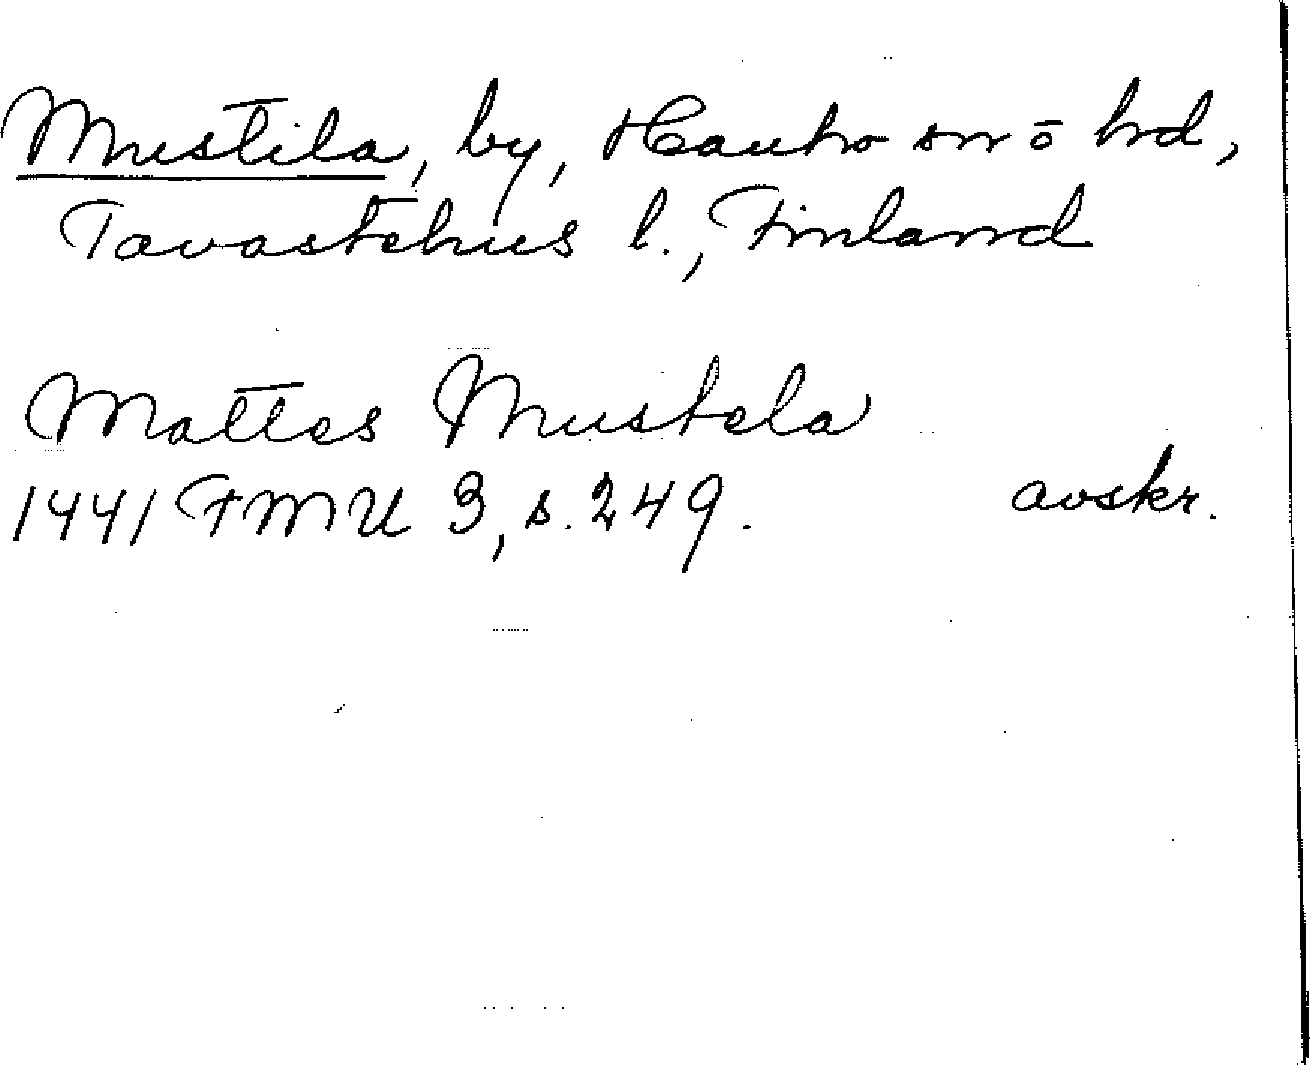 Mustila, by, Hauho sn o hd,
Tavastehus l., Finland
Mattes Mustela
1441 FMU 3, s. 249. avskr.